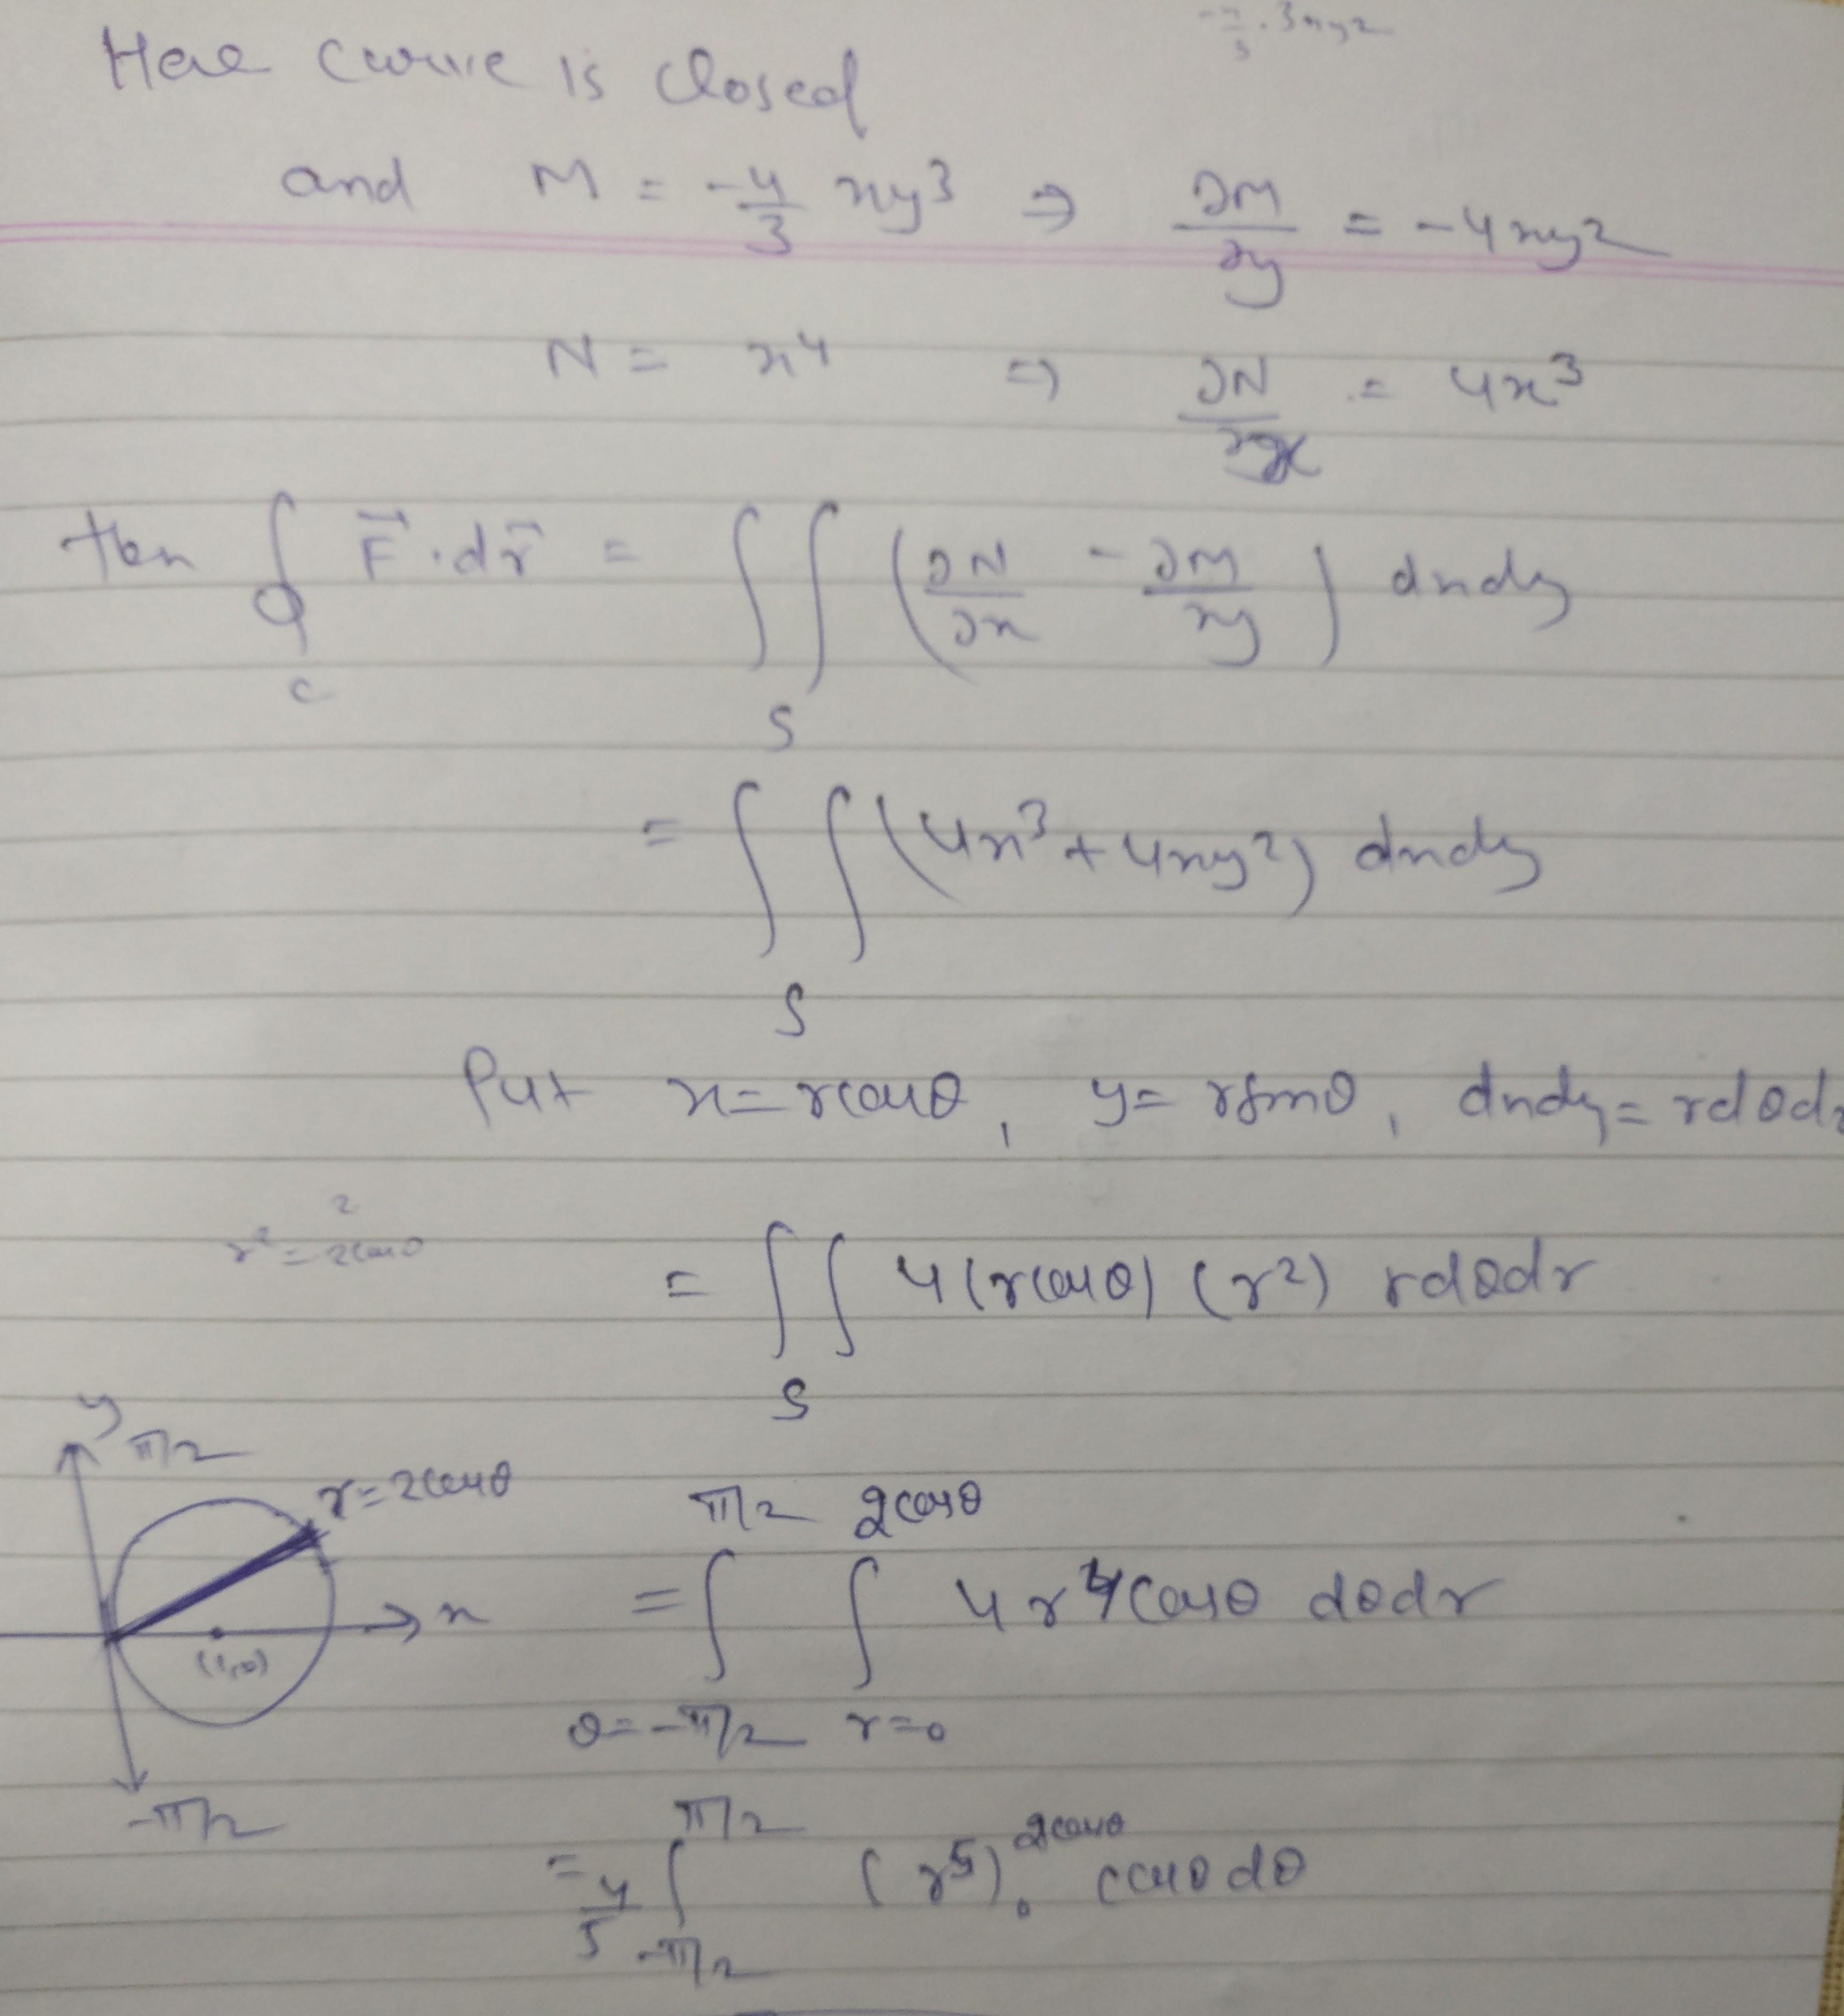 Here curve is closed
and M = -4/3 xy³ ⇒ ∂M/∂y = -4xy²
N = x⁴ ⇒ ∂N/∂x = 4x³
then ∮_C F⃗·dr⃗ = ∬_S (∂N/∂x - ∂M/∂y) dxdy
= ∬_S (4x³ + 4xy²) dxdy
Put x = rcosθ, y = rsinθ, dxdy = rdθdr
r² = 2cosθ
= ∬_S 4(rcosθ)(r²) rdθdr
y
π/2
r = 2cosθ
x
(1,0)
-π/2
= ∫_{θ=-π/2}^{π/2} ∫_{r=0}^{2cosθ} 4r⁴cosθ dθdr
= 4/5 ∫_{-π/2}^{π/2} (r⁵)₀^{2cosθ} cosθdθ